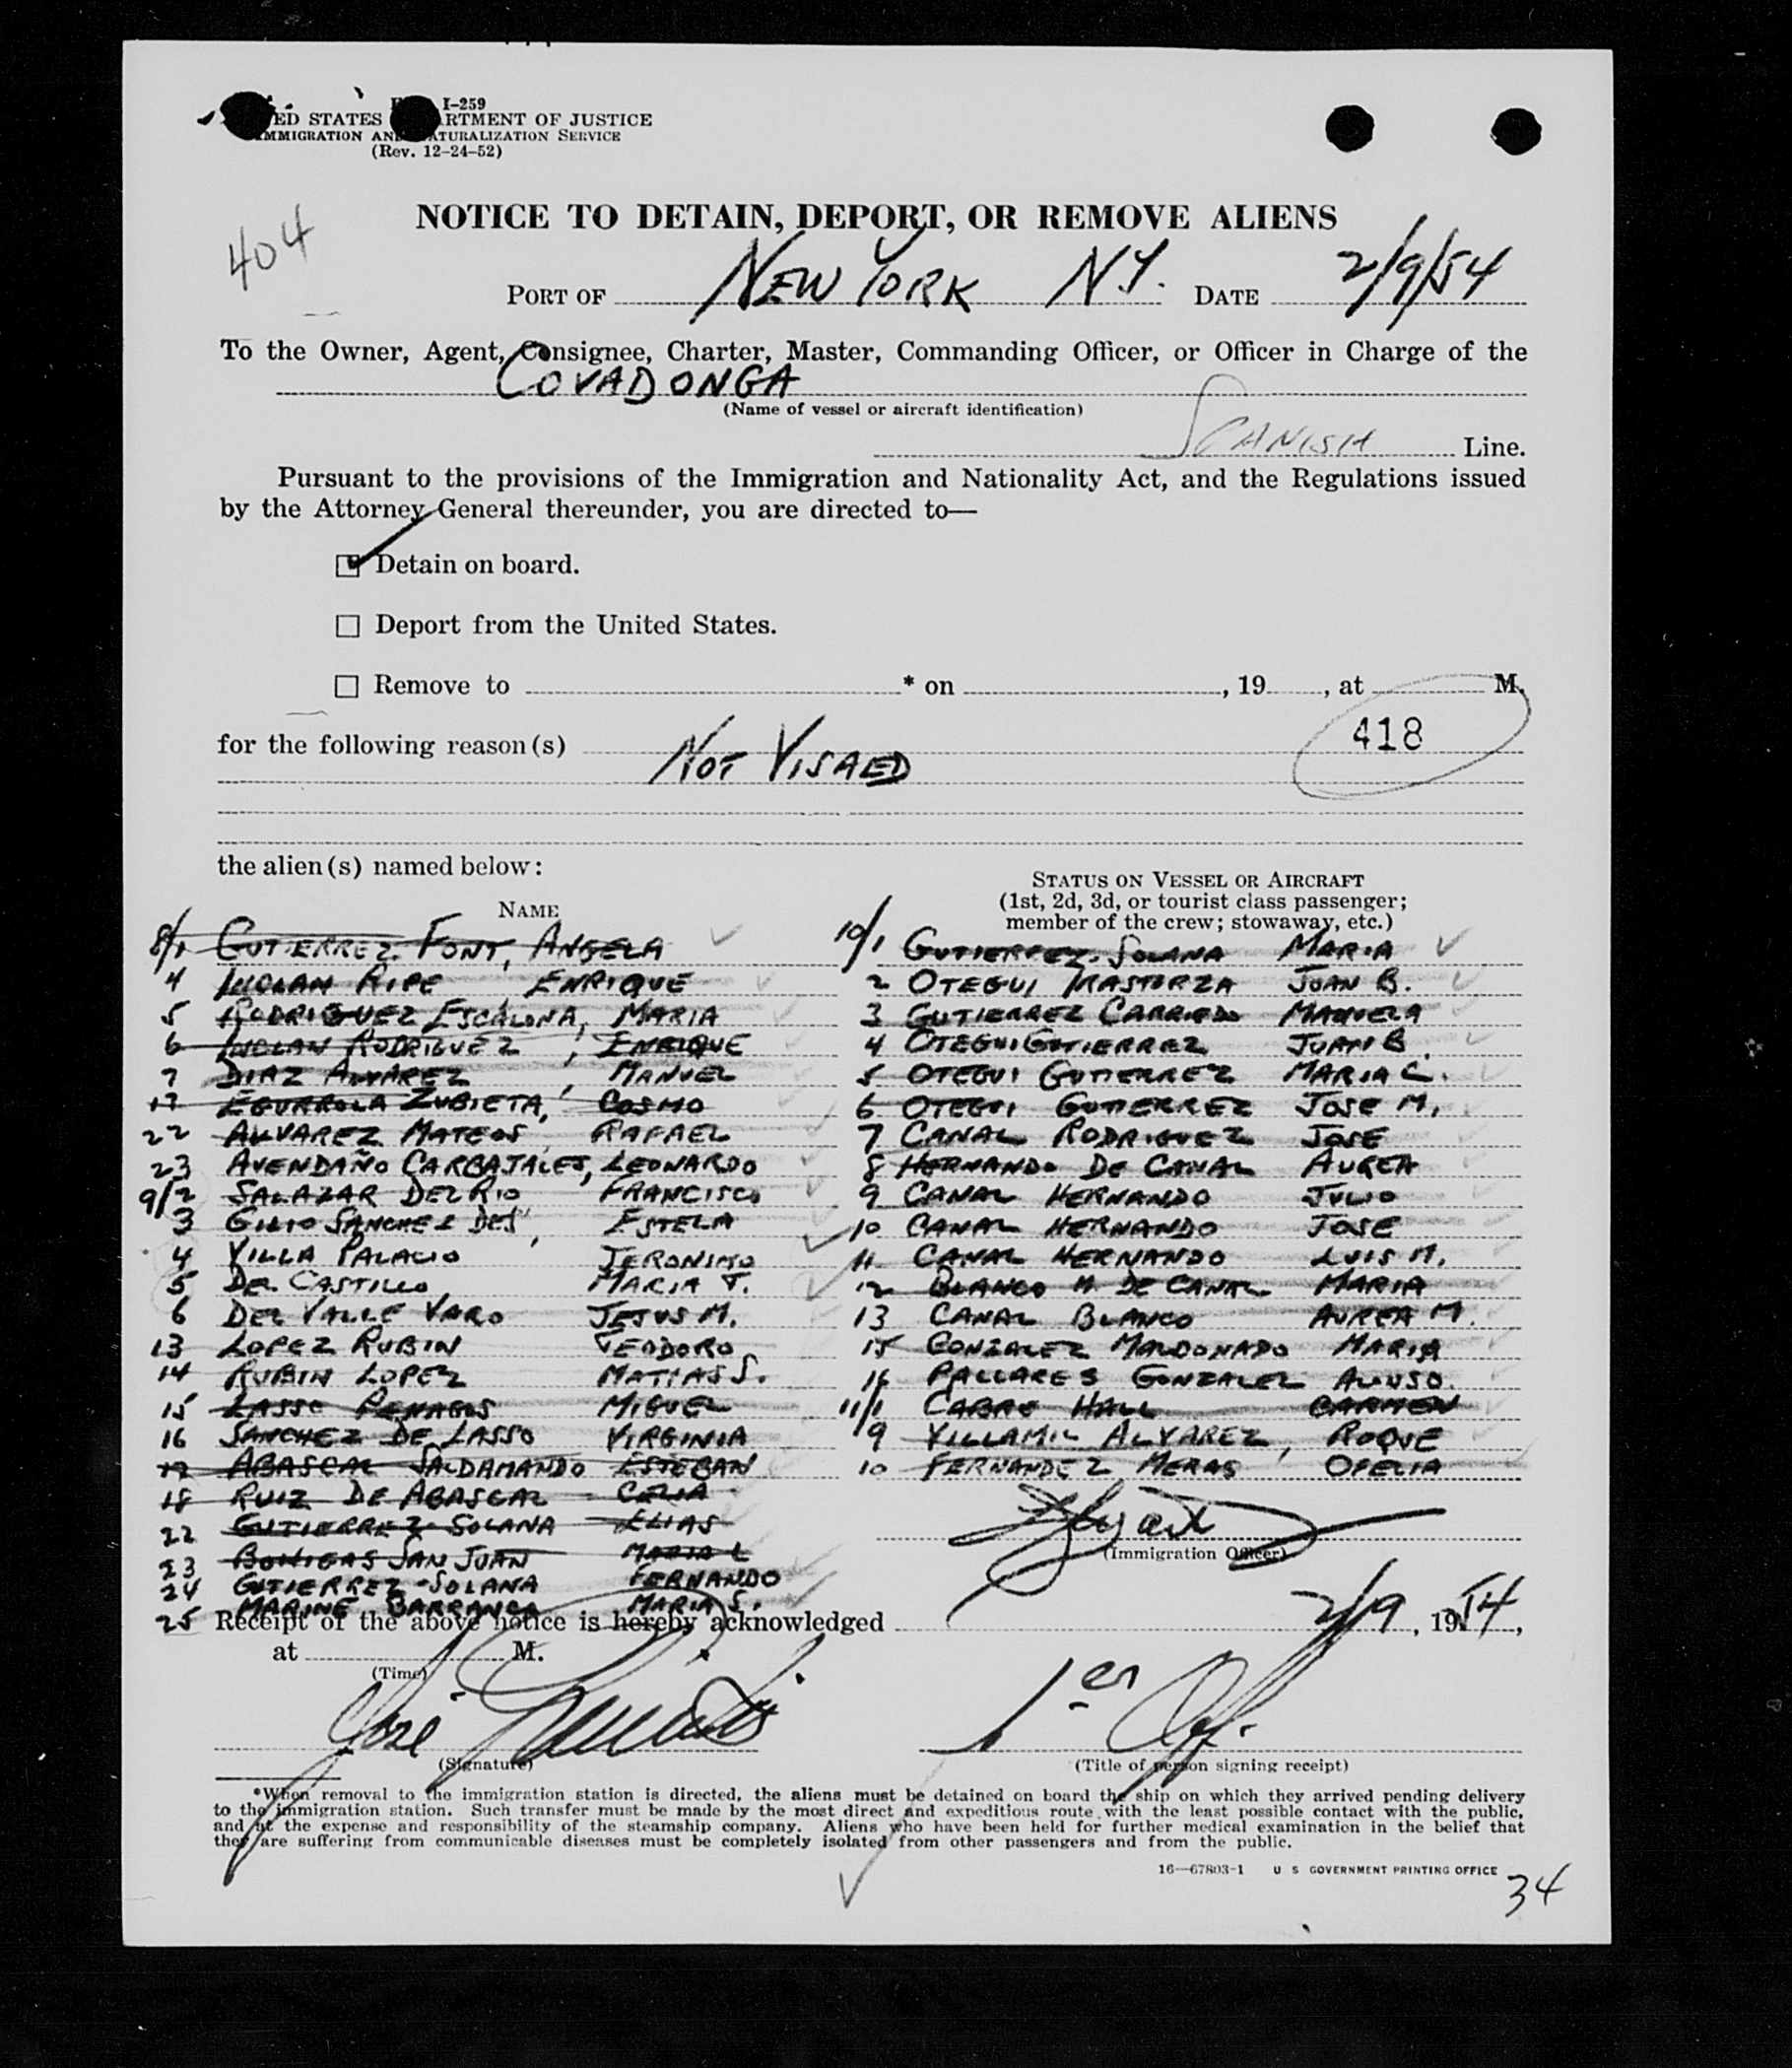 I-259
ED STATES RTMENT OF JUSTICE
MMIGRATION AN ATURALIZATION SERVICE
(Rev. 12-24-52)
404
NOTICE TO DETAIN, DEPORT, OR REMOVE ALIENS
PORT OF NEW YORK NY. DATE 2/9/54
To the Owner, Agent, Consignee, Charter, Master, Commanding Officer, or Officer in Charge of the
COVADONGA
(Name of vessel or aircraft identification)
SPANISH Line.
Pursuant to the provisions of the Immigration and Nationality Act, and the Regulations issued
by the Attorney General thereunder, you are directed to—
Detain on board.
Deport from the United States.
Remove to * on , 19 , at M.
418
for the following reason(s) NOT VISAED
the alien(s) named below:
NAME
8/1 GUTIERREZ FONT, ANGELA
4 INCLAN RIPE ENRIQUE
5 RODRIGUEZ ESCALONA, MARIA
6 INCLAN RODRIGUEZ, ENRIQUE
7 DIAZ ALVAREZ, MANUEL
17 EGURROLA ZUBIETA, COSMO
22 ALVAREZ MATEOS RAFAEL
23 AVENDAÑO CARBAJALES, LEONARDO
9/2 SALAZAR DEL RIO FRANCISCO
3 SANCHEZ DES, ESTELA
4 VILLA PALACIO JERONIMO
5 DEL CASTILLO MARIA T.
6 DEL VALLE VARO JESUS M.
13 LOPEZ RUBIN TEODORO
14 RUBIN LOPEZ MATIAS S.
15 LASSO PENAGOS MIGUEL
16 SANCHEZ DE LASSO VIRGINIA
17 ABASCAL SALDAMANDO ESTEBAN
18 RUIZ DE ABASCAL CELIA
22 GUTIERREZ-SOLANA ELIAS
23 BOHIGAS SAN JUAN MARIA L
24 GUTIERREZ-SOLANA FERNANDO
25 MARINE BARRANCA MARIA S.
STATUS ON VESSEL OR AIRCRAFT
(1st, 2d, 3d, or tourist class passenger;
member of the crew; stowaway, etc.)
10/1 GUTIERREZ-SOLANA MARIA
2 OTEGUI IRASTORZA JUAN B.
3 GUTIERREZ CARRIEDO MANUELA
4 OTEGUI GUTIERREZ JUAN B.
5 OTEGUI GUTIERREZ MARIA C.
6 OTEGUI GUTIERREZ JOSE M.
7 CANAL RODRIGUEZ JOSE
8 HERNANDO DE CANAL AUREA
9 CANAL HERNANDO JULIO
10 CANAL HERNANDO JOSE
11 CANAL HERNANDO LUIS M.
12 BLANCO H. DE CANAL MARIA
13 CANAL BLANCO AUREA M.
15 GONZALEZ MALDONADO MARIA
16 PALLARES GONZALEZ ALONSO.
11/1 CABRE HALL CARMEN
9 VILLAMIL ALVAREZ, ROQUE
10 FERNANDEZ MERAS OFELIA
(Immigration Officer)
Receipt of the above notice is hereby acknowledged 2/9, 1954,
at M.
(Time)
José 1er Off.
(Signature) (Title of person signing receipt)
*When removal to the immigration station is directed, the aliens must be detained on board the ship on which they arrived pending delivery
to the immigration station. Such transfer must be made by the most direct and expeditious route with the least possible contact with the public,
and at the expense and responsibility of the steamship company. Aliens who have been held for further medical examination in the belief that
they are suffering from communicable diseases must be completely isolated from other passengers and from the public.
16—67803-1 U S GOVERNMENT PRINTING OFFICE
34